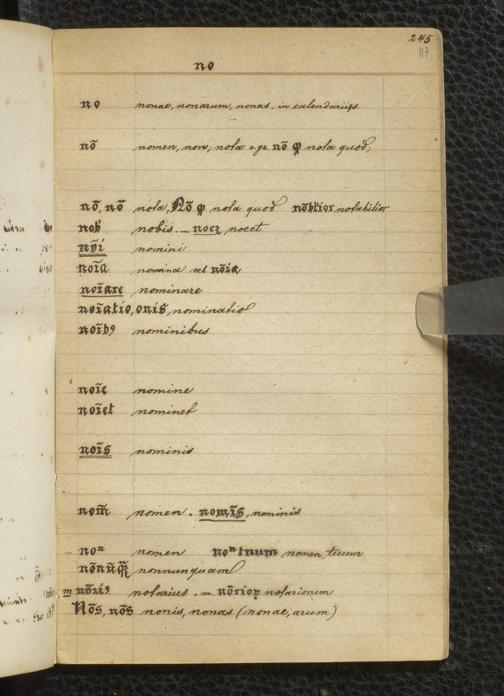 245
117
no
no nonae, nonarum, nonas, in calendariis.
nō nomen, non, nota e.gr. nō ꝙ nota quod,
nō, nō nota, Nō ꝙ nota quod nōbilior notabilior
nob' nobis. – nocꝫ nocet
nōi nomini
noīa nomina et nōia
noīare nominare
noīatio, onis nominatio
noībꝰ nominibus
noīe nomine
noīet nominet
noīs nominis
nom̄ nomen. nomīs, nominis
noⁿ nomen noⁿ tuum nomen tuum
nonnunquam
m nōriꝰ notarius. m. nōrioꝝ notariorum
Nōs, nōs nonis, nonas (nonae, arum)